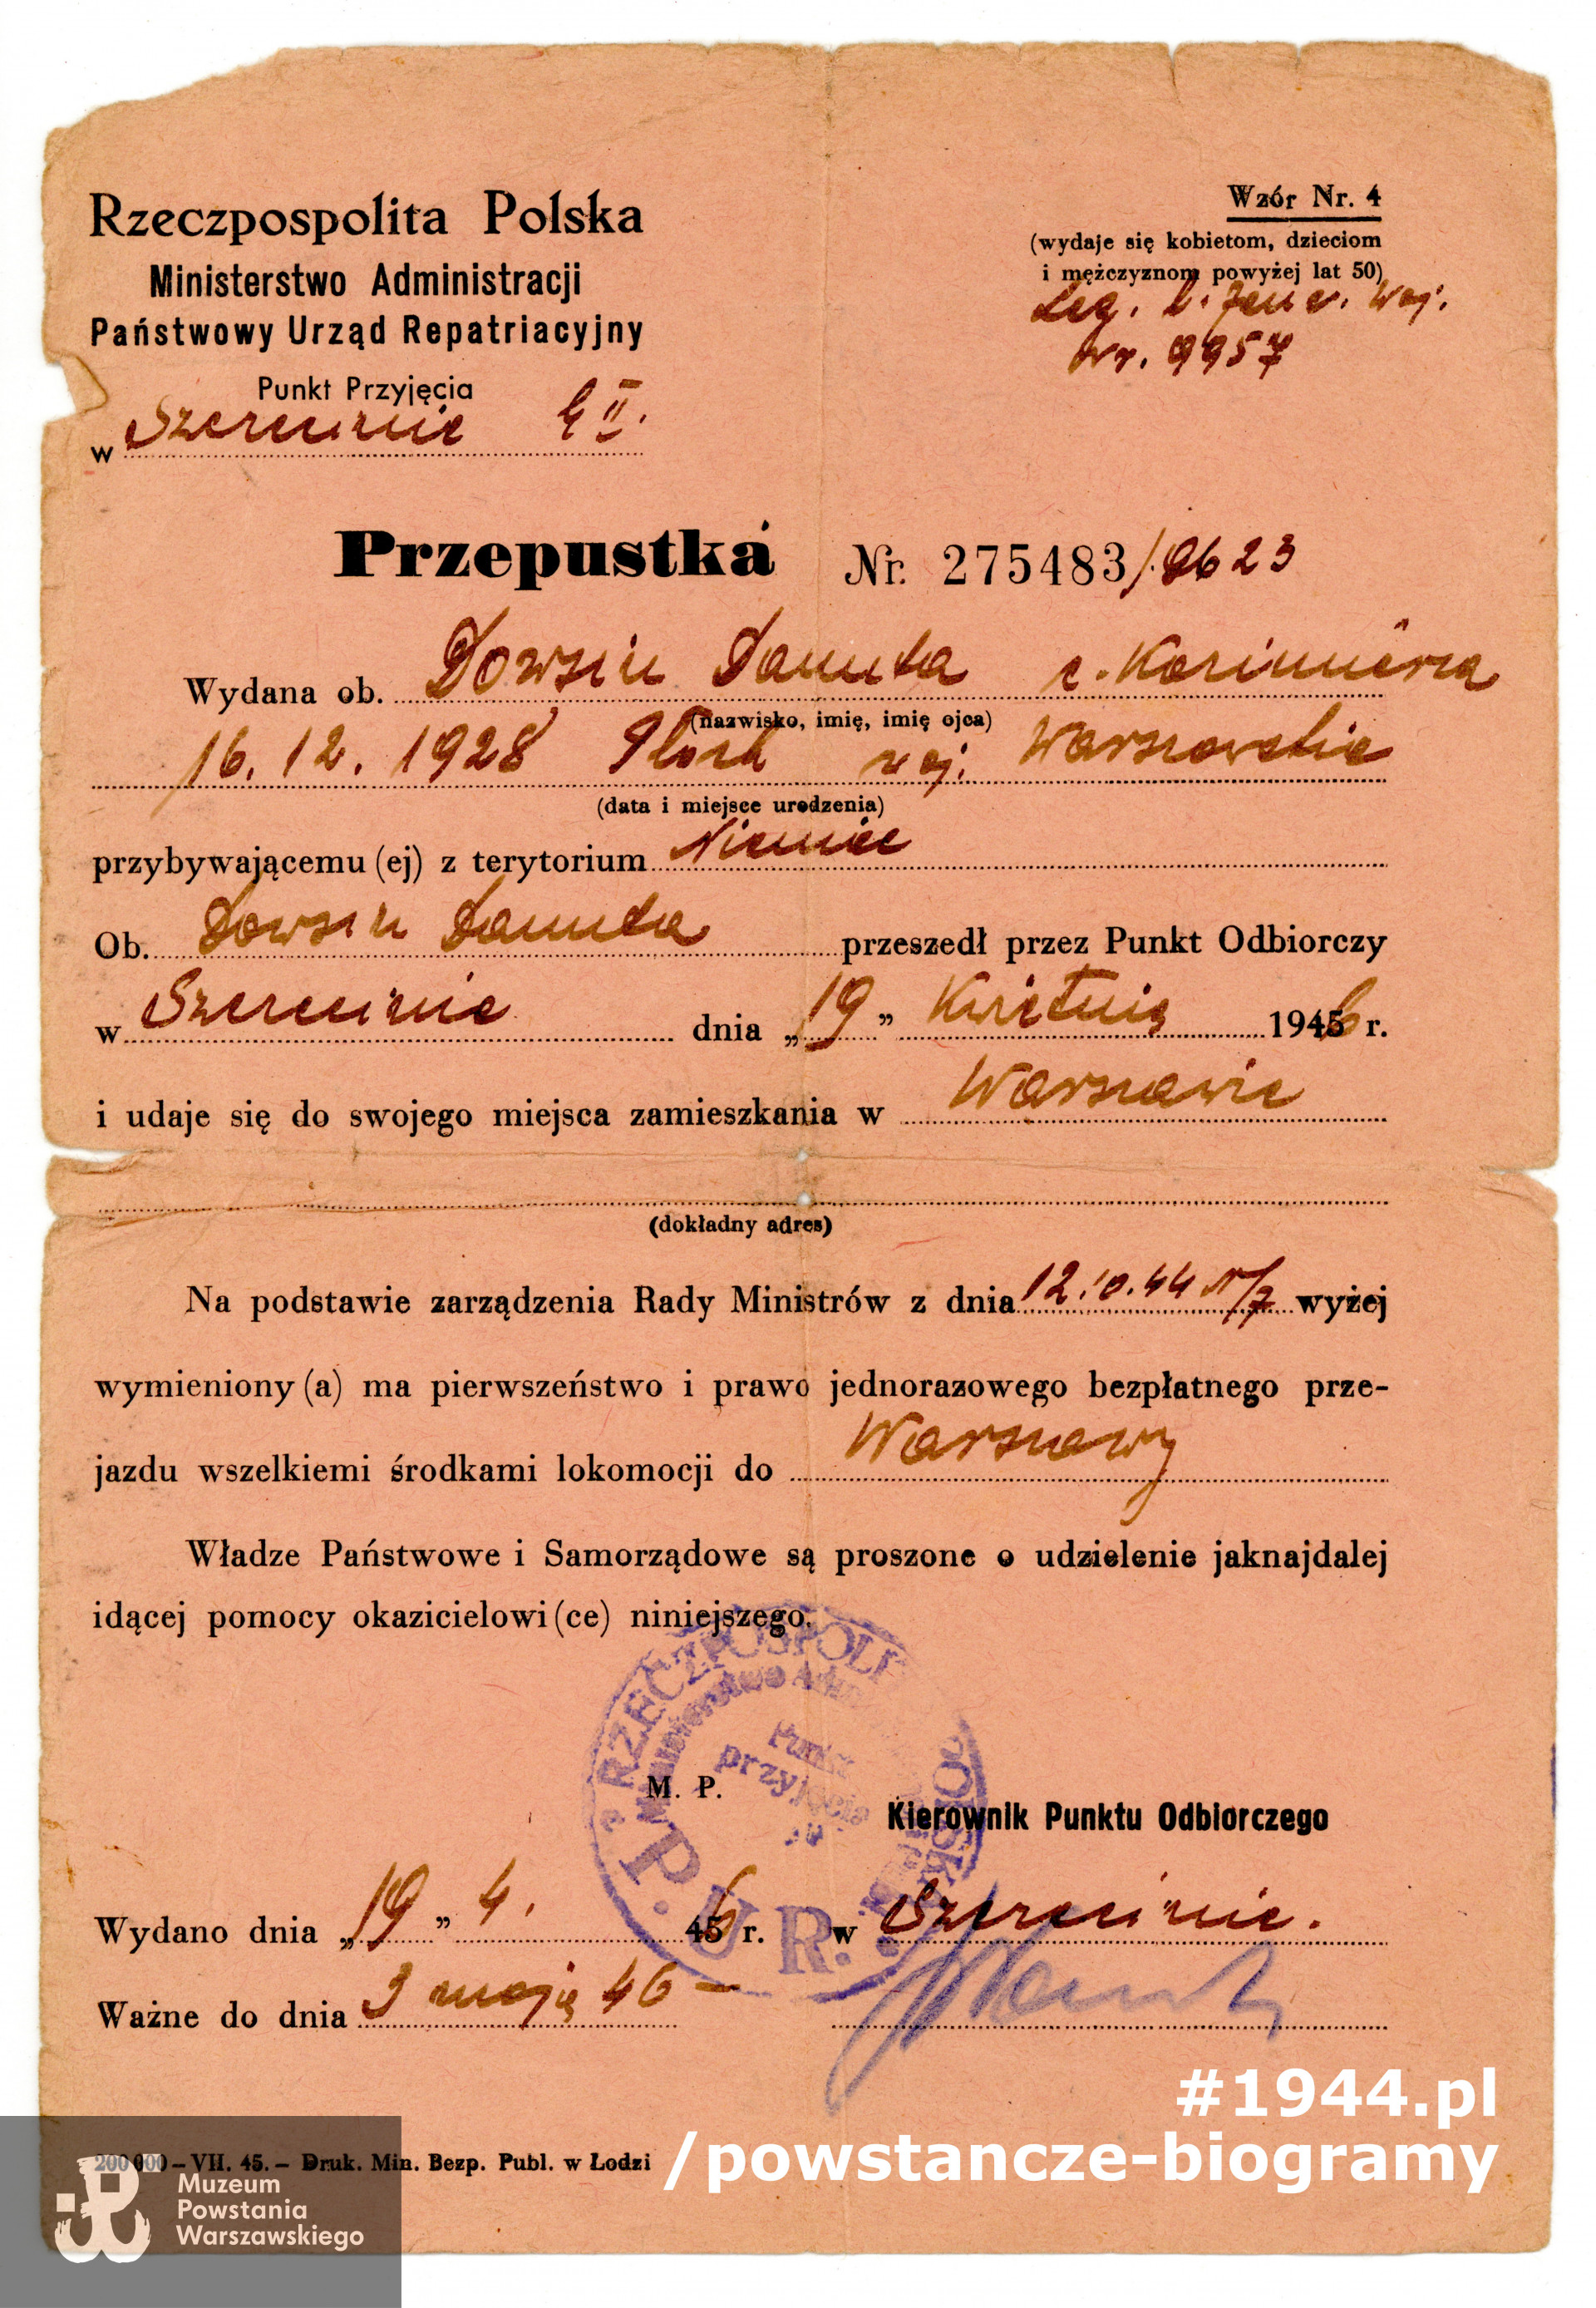 Rzeczpospolita Polska
Ministerstwo Administracji
Państwowy Urząd Repatriacyjny
Punkt Przyjęcia
w Szczecinie
Wzór Nr. 4
(wydaje się kobietom, dzieciom
i mężczyznom powyżej lat 50)
Leg. b. woj.
nr. 9957
Przepustka Nr. 275483/9623
Wydana ob. Dowsin Danuta c. Kazimierza
(nazwisko, imię, imię ojca)
16.12.1928 Płock woj. Warszawskie
(data i miejsce urodzenia)
przybywającemu (ej) z terytorium Niemiec
Ob. Dowsin Danuta przeszedł przez Punkt Odbiorczy
w Szczecinie dnia „19” Kwietnia 1946 r.
i udaje się do swojego miejsca zamieszkania w Warszawie
(dokładny adres)
Na podstawie zarządzenia Rady Ministrów z dnia 12.10.44 wyżej
wymieniony (a) ma pierwszeństwo i prawo jednorazowego bezpłatnego prze-
jazdu wszelkiemi środkami lokomocji do Warszawy
Władze Państwowe i Samorządowe są proszone o udzielenie jaknajdalej
idącej pomocy okazicielowi (ce) niniejszego.
RZECZPOSPOLITA POLSKA
Ministerstwo
Punkt
przyjęcia
P.U.R.
M. P.
Kierownik Punktu Odbiorczego
Wydano dnia „19” 4. 46 r. w Szczecinie.
Ważne do dnia 3 maja 46 —
#1944.pl
/powstancze-biogramy
200 000 – VII. 45. – Druk. Min. Bezp. Publ. w Łodzi
Muzeum
Powstania
Warszawskiego